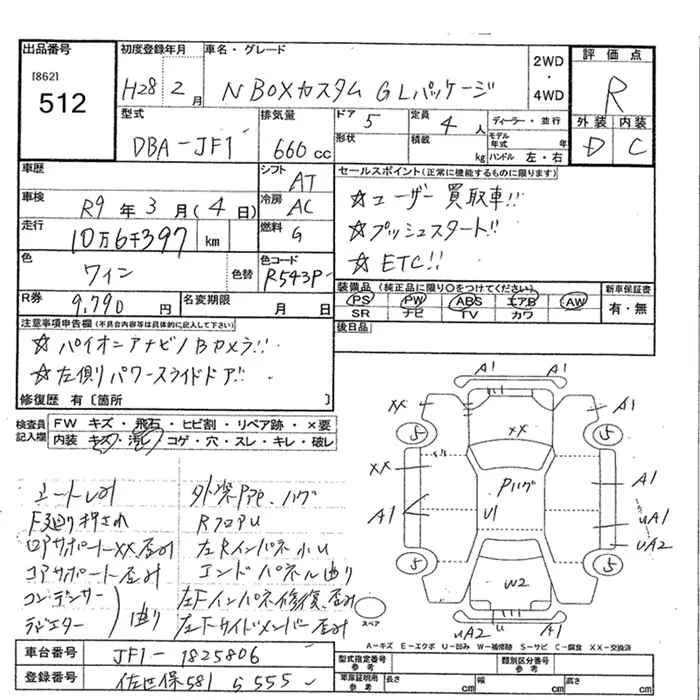 出品番号
[862]
512
初度登録年月
H28 2月
車名・グレード
N BOXカスタム GLパッケージ
2WD
・
4WD
評価点
R
外装 内装
D C
型式
DBA-JF1
排気量
660cc
ドア 5
形状
定員 4人
積載 kg
ディーラー・並行
モデル年式 年
ハンドル 左・右
車歴
車検
R9年3月(4日)
走行
10万6千397 km
色
ワイン
色替
シフト AT
冷房 AC
燃料 G
色コード
R543P
R券
9,790円
名変期限
月 日
セールスポイント(正常に機能するものに限ります)
☆ユーザー買取車!!
☆プッシュスタート!!
☆ETC!!
装備品(純正品に限り○をつけてください)
PS PW ABS エアB AW
SR ナビ TV カワ
新車保証書
有・無
後日品
注意事項申告欄(不具合内容等は具体的に記入して下さい)
☆パイオニアナビ/Bカメラ!!
☆左側パワースライドドア!!
修復歴 有〔箇所 〕
検査員記入欄
FW キズ・飛石・ヒビ割・リペア跡・×要
内装 キズ・汚レ・コゲ・穴・スレ・キレ・破レ
F廻り押され
コアサポートXX歪み
コアサポート歪み
コンデンサー
ラジエター
曲り
RフロアU
左Rインパネ小U
エンドパネル曲り
左Fインパネ修復、歪み
左Fサイドメンバー歪み
A1
XX
A1
5
5
XX
XX
Pハゲ
A1
A1
U1
uA1
uA2
5
5
W2
uA2
A1
スペア
A-キズ E-エクボ U-凹み W-補修跡 S-サビ C-腐食 XX-交換済
車台番号
JF1-1825806
登録番号
佐世保581 ら 555
型式指定番号
参考
類別区分番号
参考
車庫証明用
参考
長さ cm
幅 cm
高さ cm